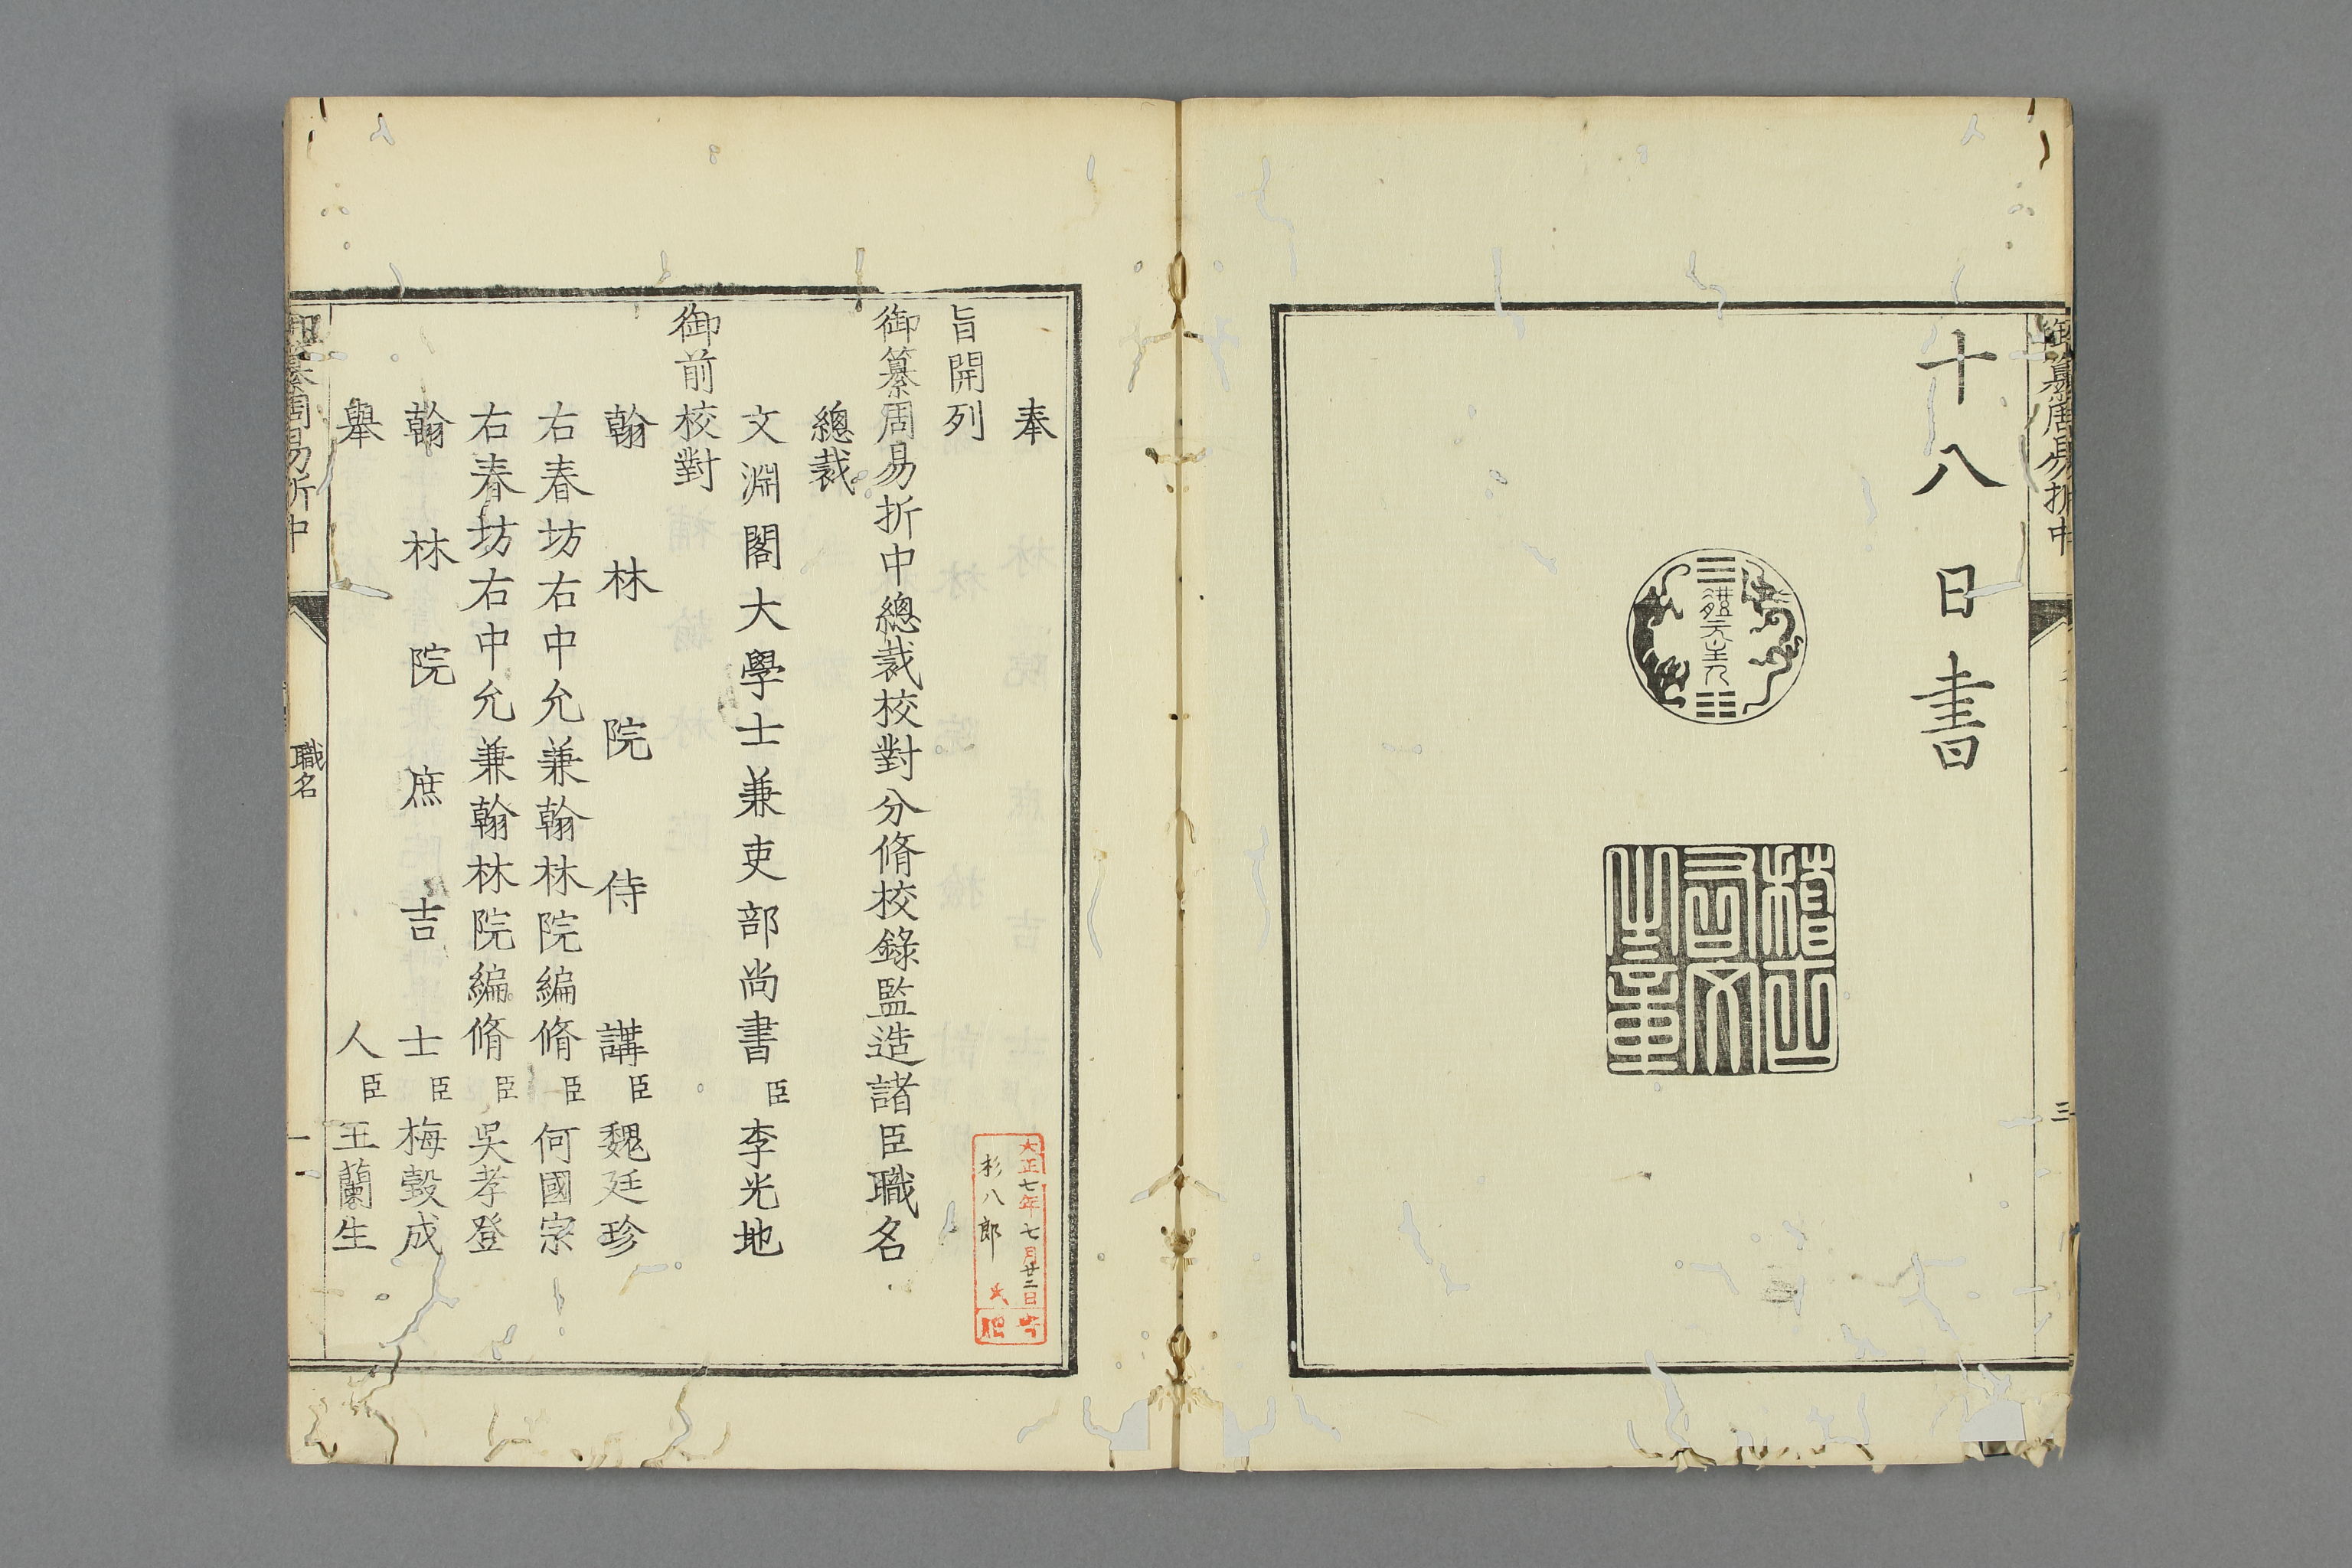 御纂周易折中
三
十八日書
體元主人
稽古右文之章
奉
旨開列
御纂周易折中總裁校對分脩校錄監造諸臣職名
總裁
文淵閣大學士兼吏部尚書臣李光地
御前校對
翰林院侍講臣魏廷珍
右春坊右中允兼翰林院編脩臣何國宗
右春坊右中允兼翰林院編脩臣吳孝登
翰林院庶吉士臣梅瑴成
舉人臣王蘭生
御纂周易折中
職名
一
大正七年七月廿二日
杉八郎氏